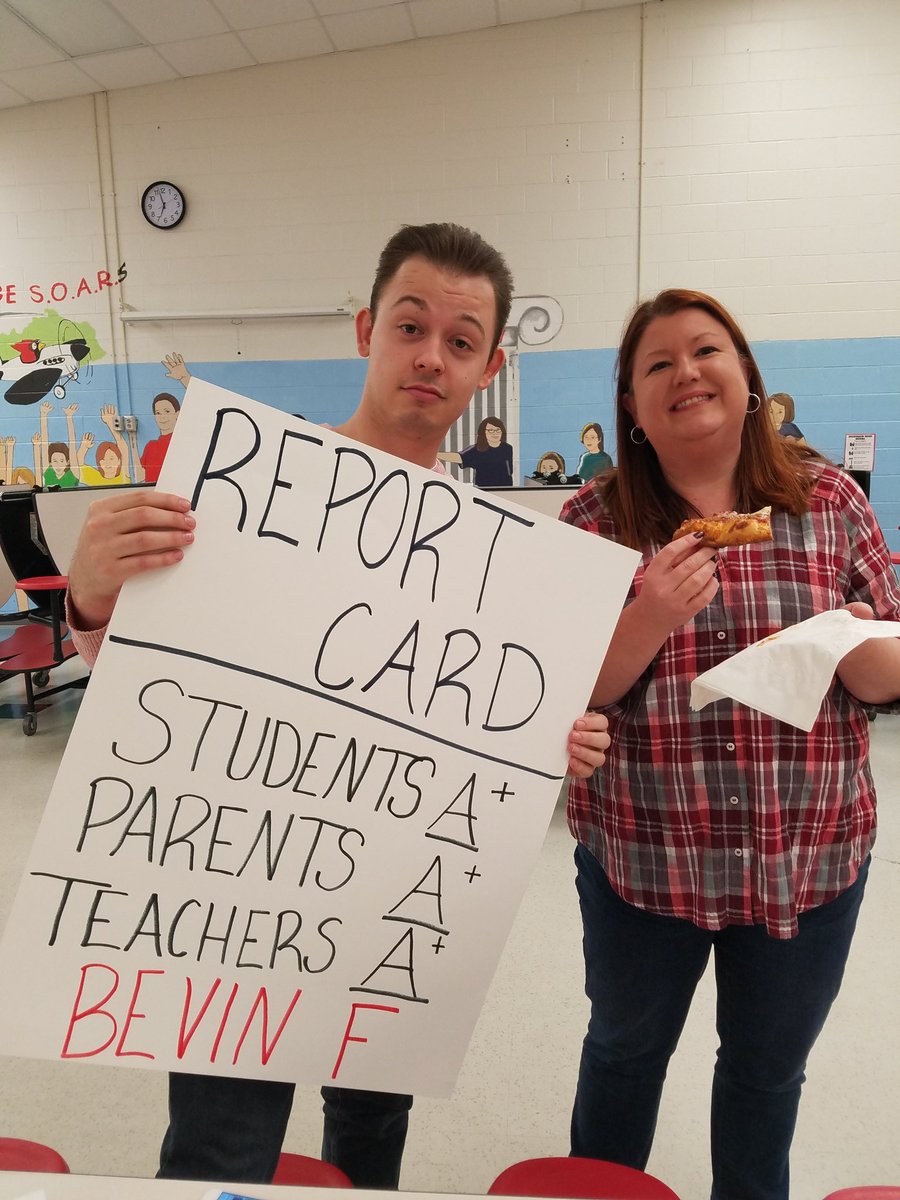 S.O.A.R.S
REPORT
CARD
STUDENTS A+
PARENTS A+
TEACHERS A+
BEVIN F